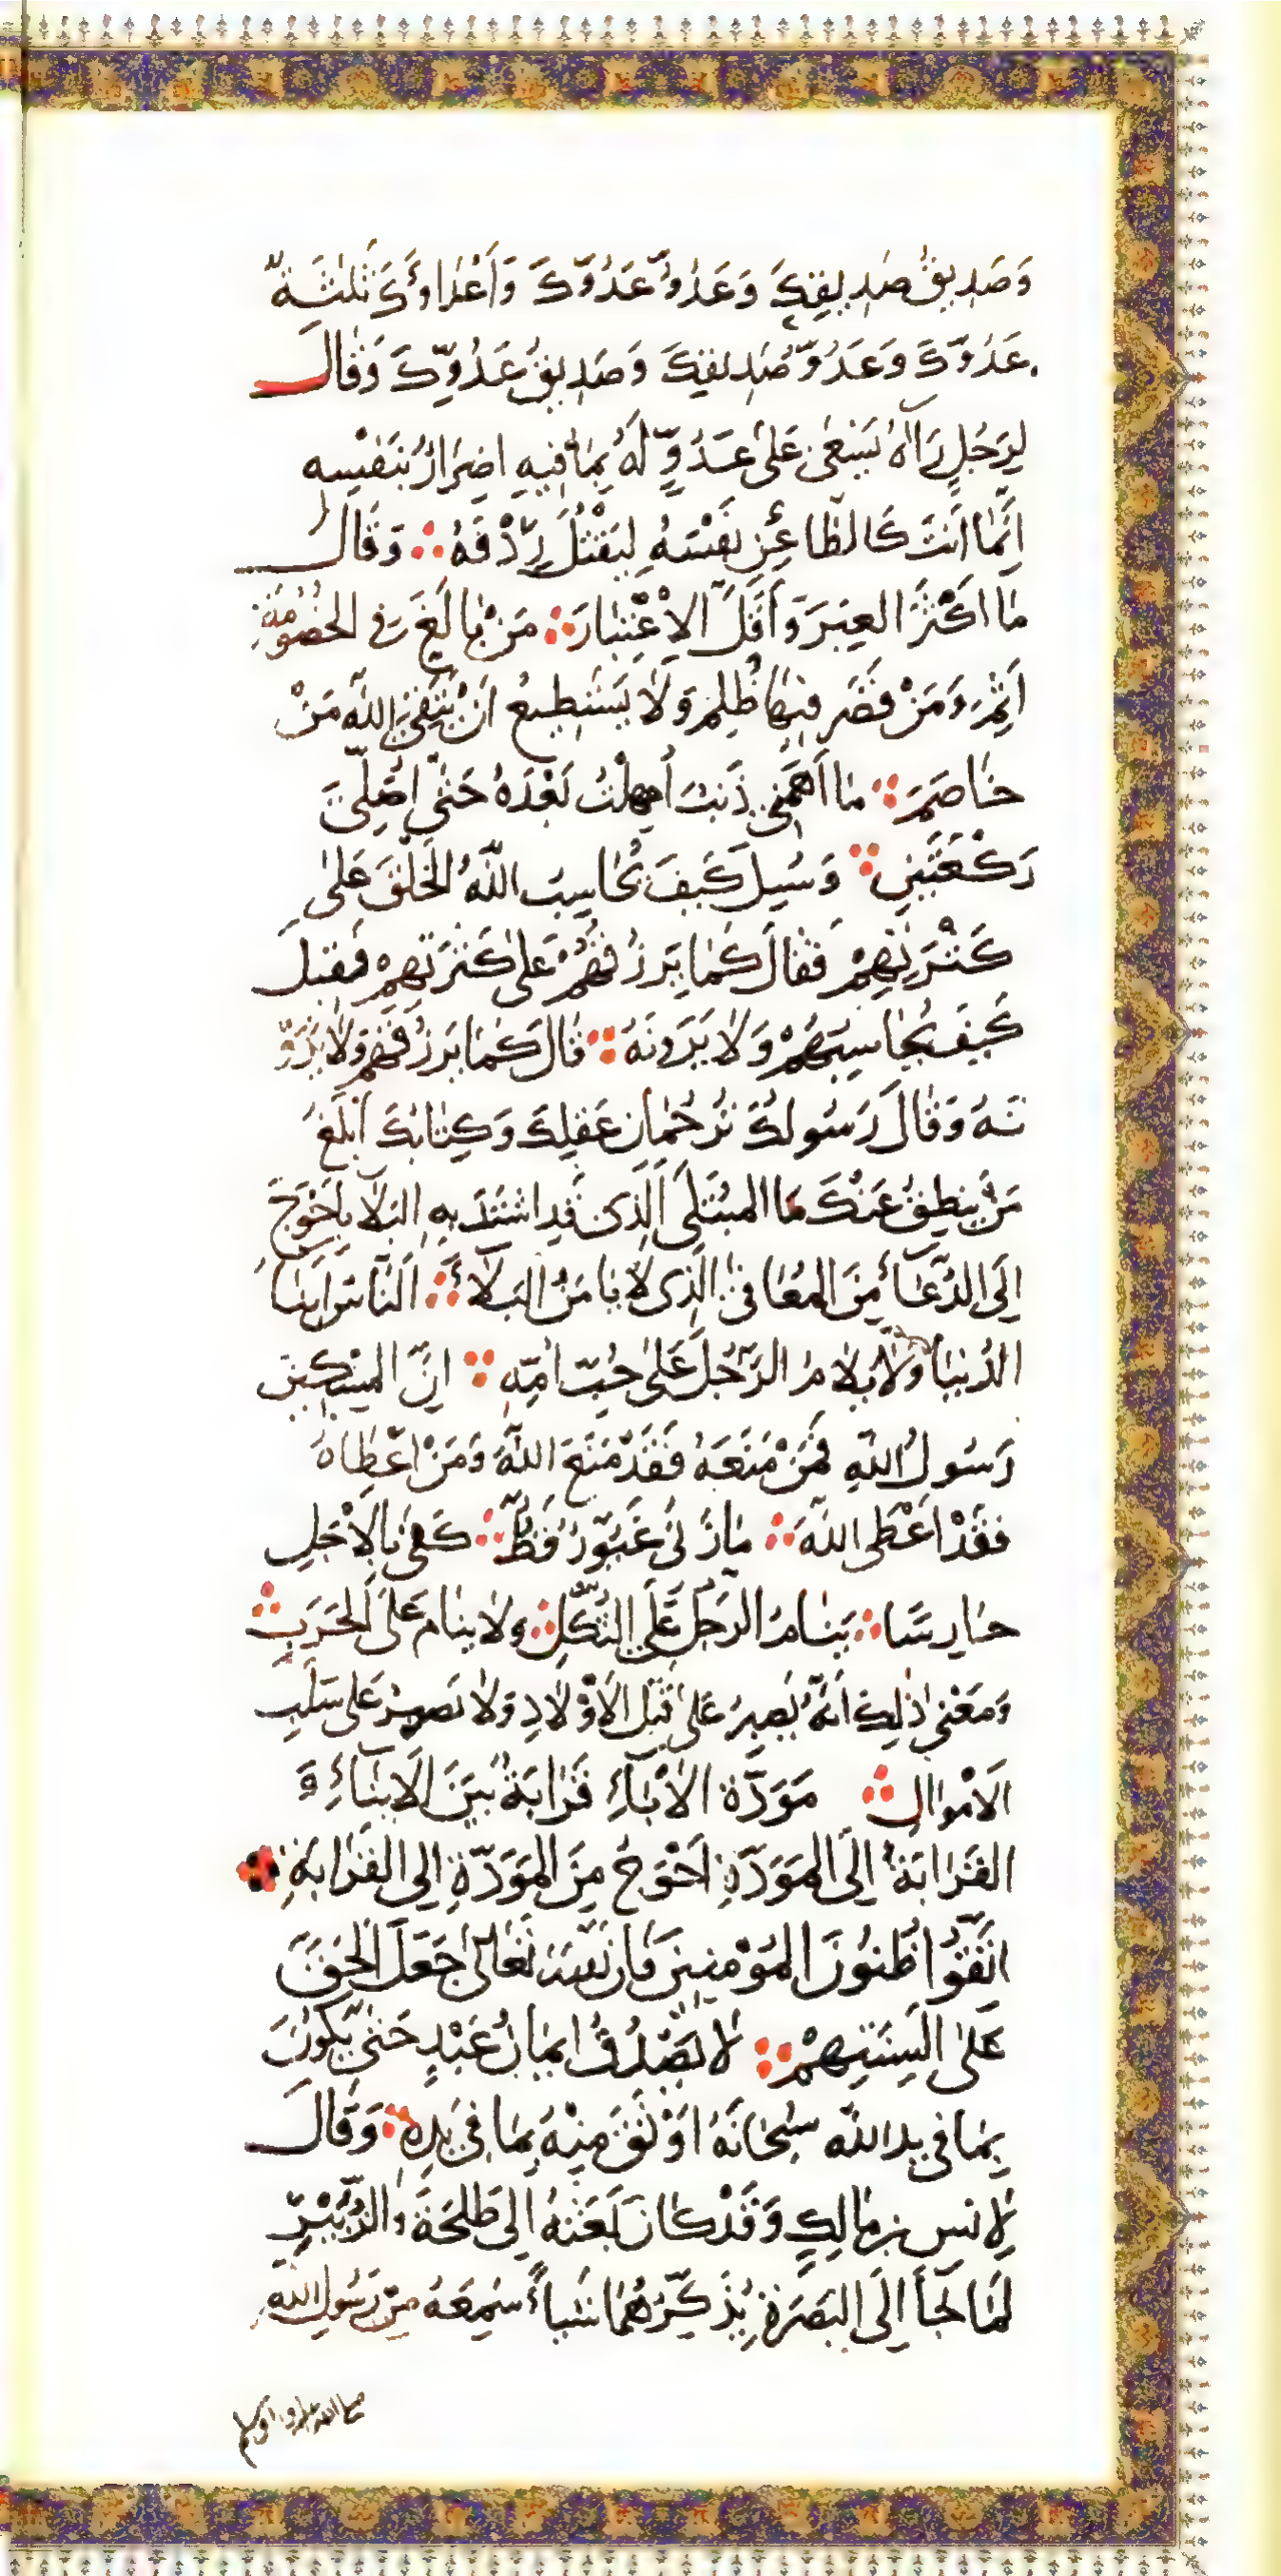 وَصَدِيقُ صَدِيقِكَ وَعَدُوُّ عَدُوِّكَ وَاَعْدَاوُكَ ثَلٰثَةٌ
عَدُوُّكَ وَعَدُوُّ صَدِيقِكَ وَصَدِيقُ عَدُوِّكَ وَقَالَ
لِرَجُلٍ رَاٰهُ يَسْعٰى عَلٰى عَدُوٍّ لَهُ بِمَا فِيهِ اِضْرَارٌ بِنَفْسِهِ
اِنَّمَا اَنْتَ كَالطَّاعِنِ نَفْسَهُ لِيَقْتُلَ رِدْفَهُ وَقَالَ
مَا اَكْثَرَ الْعِبَرَ وَاَقَلَّ الْاِعْتِبَارَ مَنْ بَالَغَ فِى الخُصُومَةِ
اَثِمَ وَمَنْ قَصَّرَ فِيهَا ظُلِمَ وَلَا يَسْتَطِيعُ اَنْ يَتَّقِىَ اللّٰهَ مَنْ
خَاصَمَ مَا اَهَمَّنِى ذَنْبٌ اُمْهِلْتُ بَعْدَهُ حَتّٰى اُصَلِّىَ
رَكْعَتَيْنِ وَسُئِلَ كَيْفَ يُحَاسِبُ اللّٰهُ الْخَلْقَ عَلٰى
كَثْرَتِهِمْ فَقَالَ كَمَا يَرْزُقُهُمْ عَلٰى كَثْرَتِهِمْ فَقِيلَ
كَيْفَ يُحَاسِبُهُمْ وَلَا يَرَوْنَهُ قَالَ كَمَا يَرْزُقُهُمْ وَلَا يَرَوْ
نَهُ وَقَالَ رَسُولُكَ تَرْجُمَانُ عَقْلِكَ وَكِتَابُكَ اَبْلَغُ
مَنْ يَنْطِقُ عَنْكَ مَا الْمُبْتَلَى الَّذِى قَدِ اشْتَدَّ بِهِ الْبَلَا بِاَحْوَجَ
اِلَى الدُّعَاءِ مِنَ الْمُعَافٰى الَّذِى لَا يَامَنُ الْبَلَاءَ اَلنَّاسُ اَبْنَاءُ
الدُّنْيَا وَلَا يُلَامُ الرَّجُلُ عَلٰى حُبِّ اُمِّهِ اِنَّ الْمِسْكِينَ
رَسُولُ اللّٰهِ فَمَنْ مَنَعَهُ فَقَدْ مَنَعَ اللّٰهَ وَمَنْ اَعْطَاهُ
فَقَدْ اَعْطَى اللّٰهَ مَا زَنٰى غَيُورٌ قَطُّ كَفٰى بِالْاَجَلِ
حَارِسًا يَنَامُ الرَّجُلُ عَلَى الثُّكْلِ وَلَا يَنَامُ عَلَى الْحَرَبِ
وَمَعْنٰى ذٰلِكَ اَنَّهُ يَصْبِرُ عَلٰى قَتْلِ الْاَوْلَادِ وَلَا يَصْبِرُ عَلٰى سَلْبِ
الْاَمْوَالِ مَوَدَّةُ الْاٰبَاءِ قَرَابَةٌ بَيْنَ الْاَبْنَاءِ وَ
الْقَرَابَةُ اِلَى الْمَوَدَّةِ اَحْوَجُ مِنَ الْمَوَدَّةِ اِلَى الْقَرَابَةِ
اتَّقُوا ظُنُونَ الْمُؤْمِنِينَ فَاِنَّ اللّٰهَ تَعَالٰى جَعَلَ الْحَقَّ
عَلٰى اَلْسِنَتِهِمْ لَا يَصْدُقُ اِيمَانُ عَبْدٍ حَتّٰى يَكُونَ
بِمَا فِى يَدِ اللّٰهِ سُبْحَانَهُ اَوْثَقَ مِنْهُ بِمَا فِى يَدِهِ وَقَالَ
لِاَنَسِ بْنِ مَالِكٍ وَقَدْ كَانَ بَعَثَهُ اِلٰى طَلْحَةَ وَالزُّبَيْرِ
لَمَّا جَاءَ اِلَى الْبَصْرَةِ يُذَكِّرُهُمَا شَيْاً سَمِعَهُ مِنْ رَسُولِ اللّٰهِ